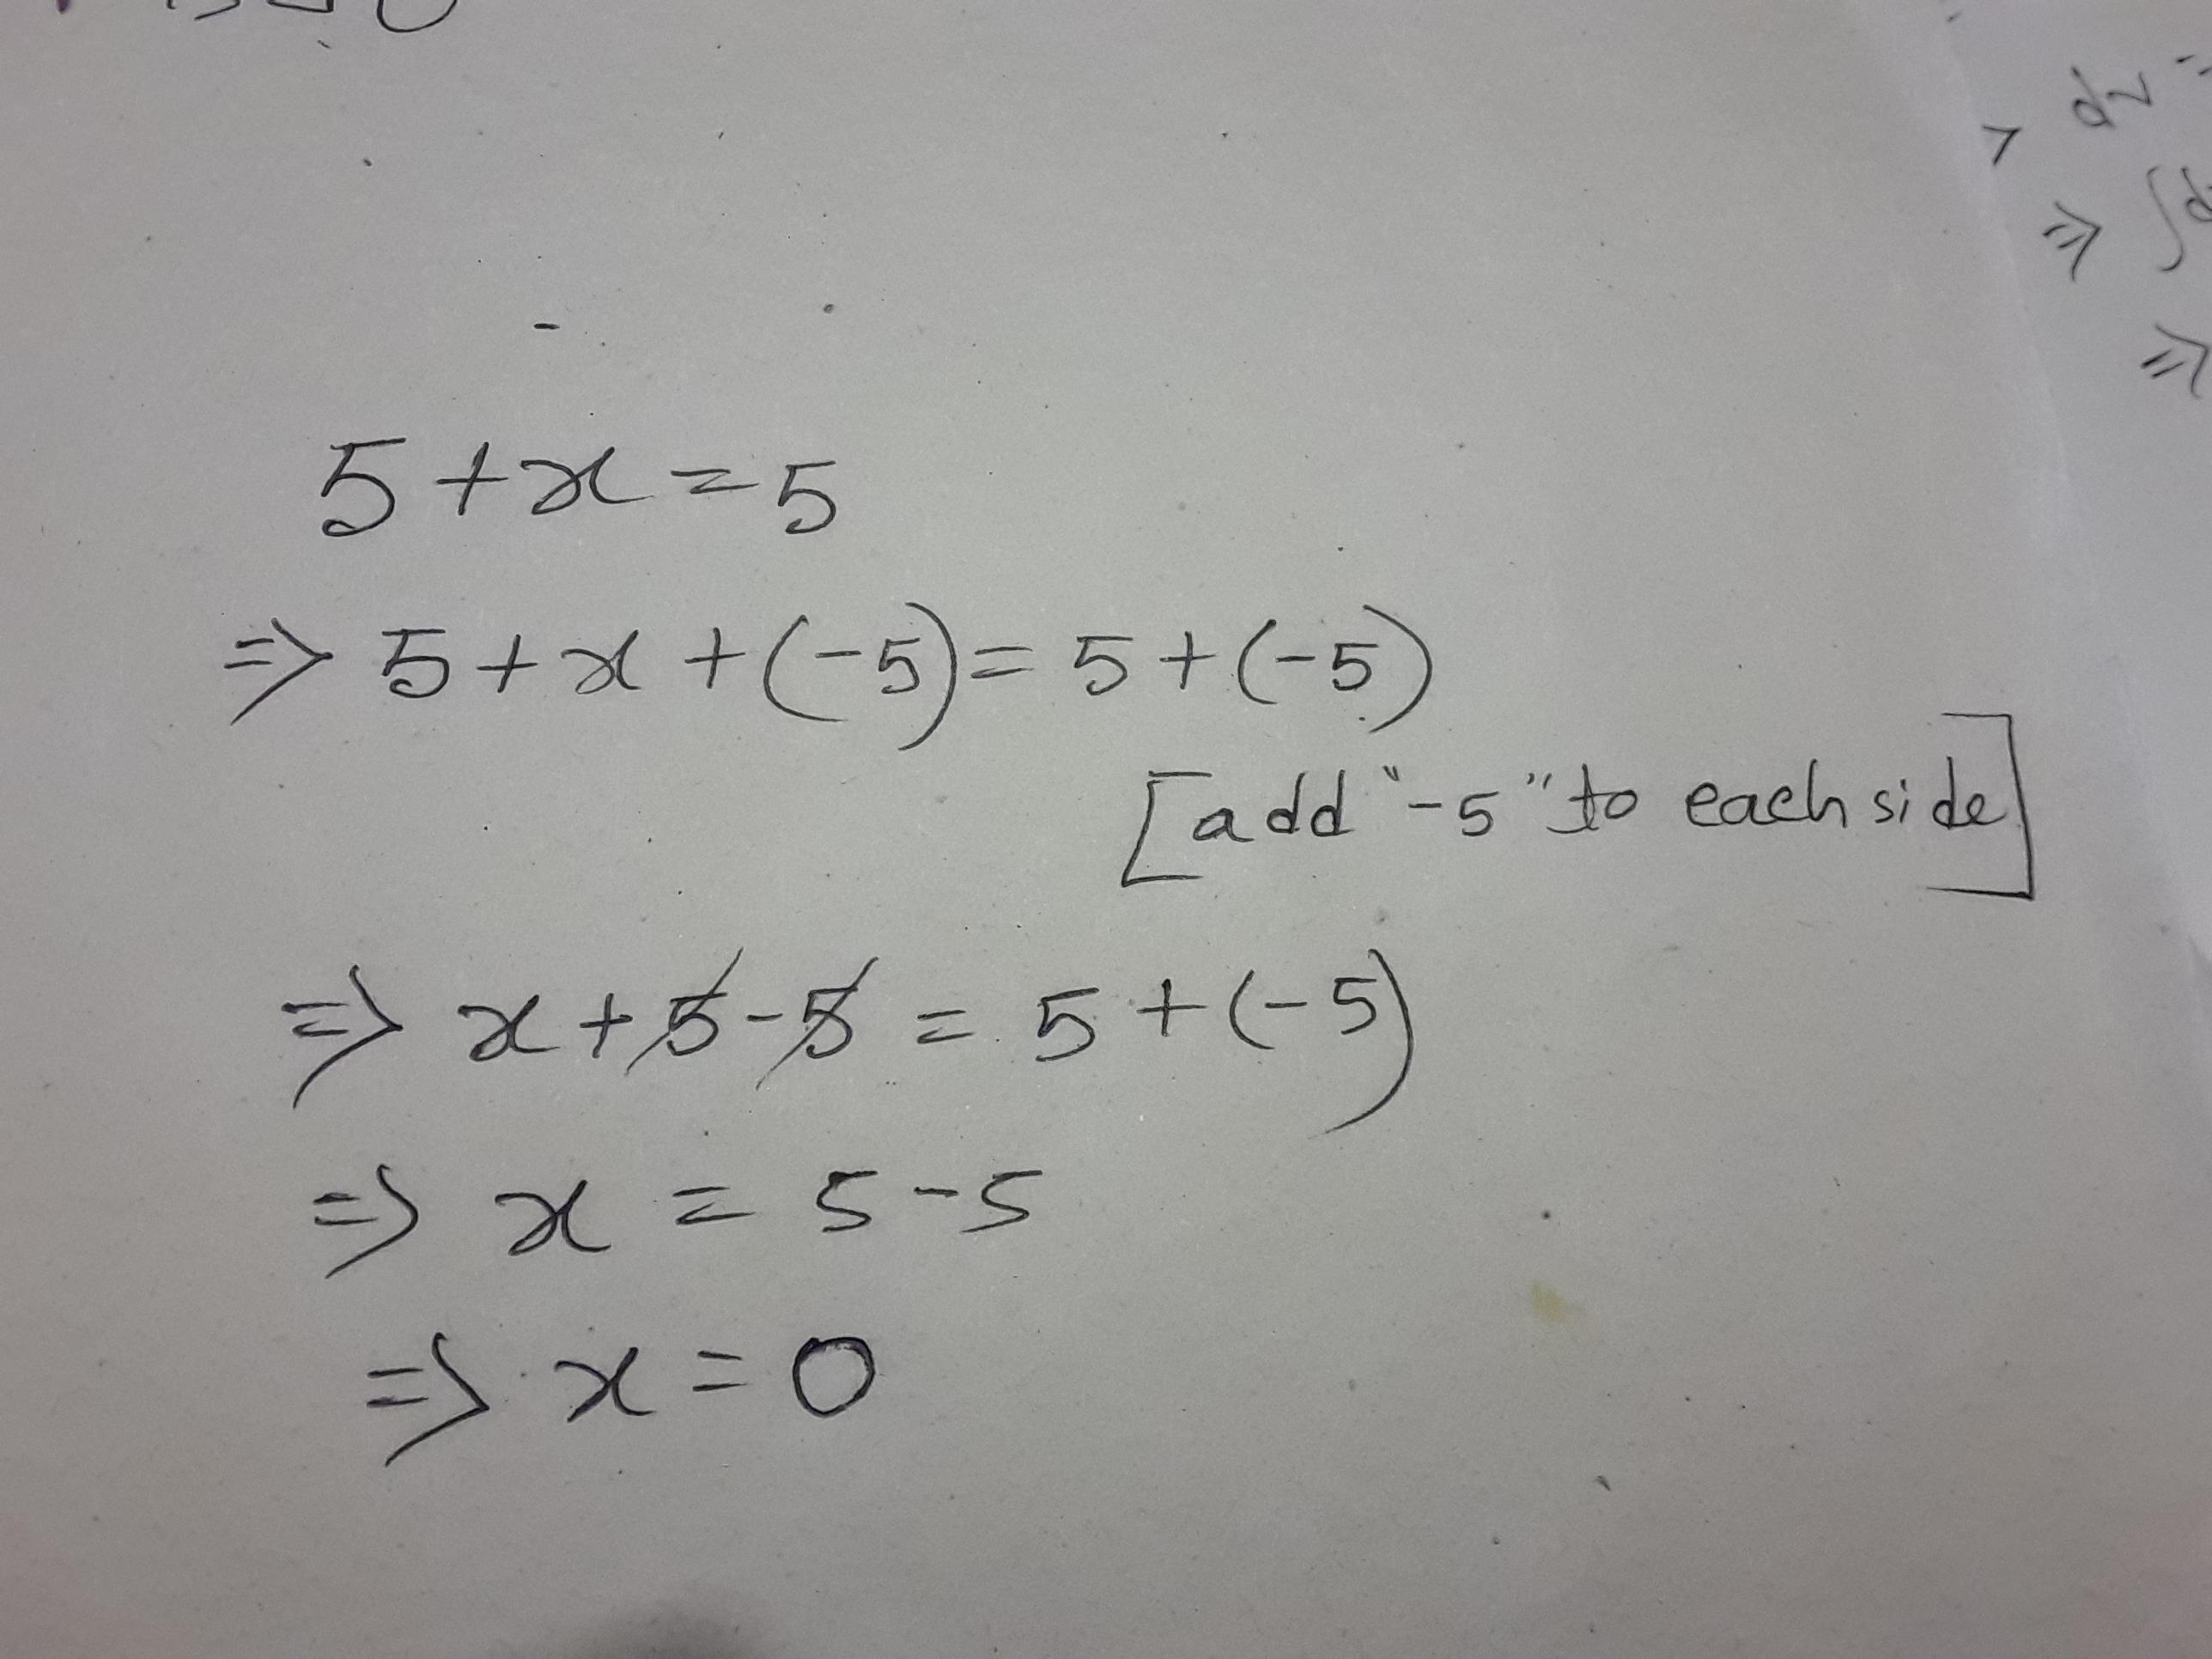 5 + x = 5
⇒ 5 + x + (-5) = 5 + (-5)
[add "-5" to each side]
⇒ x + 5 - 5 = 5 + (-5)
⇒ x = 5 - 5
⇒ x = 0
dv =
⇒ ∫d
⇒